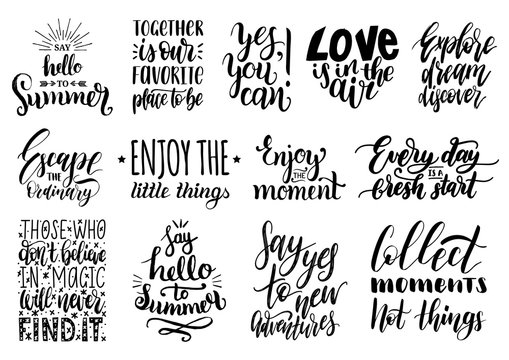 SAY
hello
TO
Summer
TOGETHER
is our
FAVORITE
place to be
Yes,
you
can!
LOVE
is in the
air
Explore
dream
discover
Escape
THE
Ordinary
ENJOY THE
little things
Enjoy
THE
moment
Every day
IS A
fresh start
THOSE WHO
don't believe
IN MAGIC
will never
FIND IT.
Say
hello
to
Summer
Say
yes
to new
adventures
Collect
moments
Not things